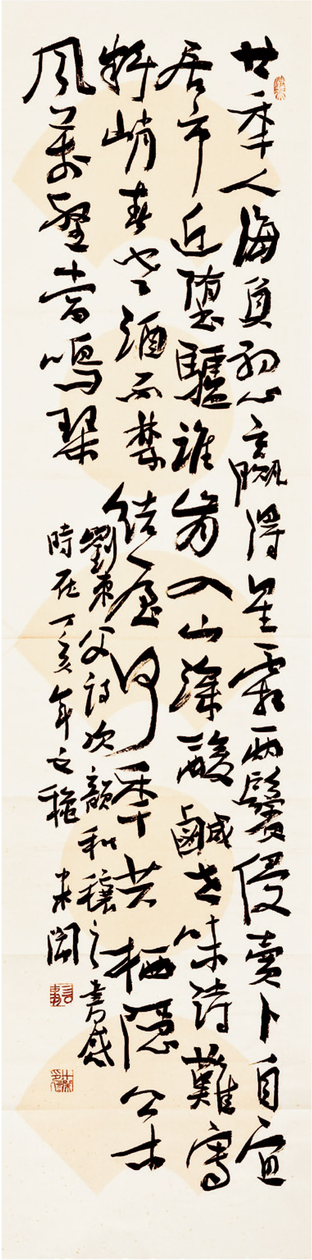 廿秊人海負初心贏得星霜兩鬢侵賣卜自宜
居市近堕驢誰入山深酸鹹世味詩難寫
料峭春寒酒不禁結屋何秊共栖隱松
風萬壑當鳴琴
劉東父詩次韻和穰之書感
時在丁亥年之龝